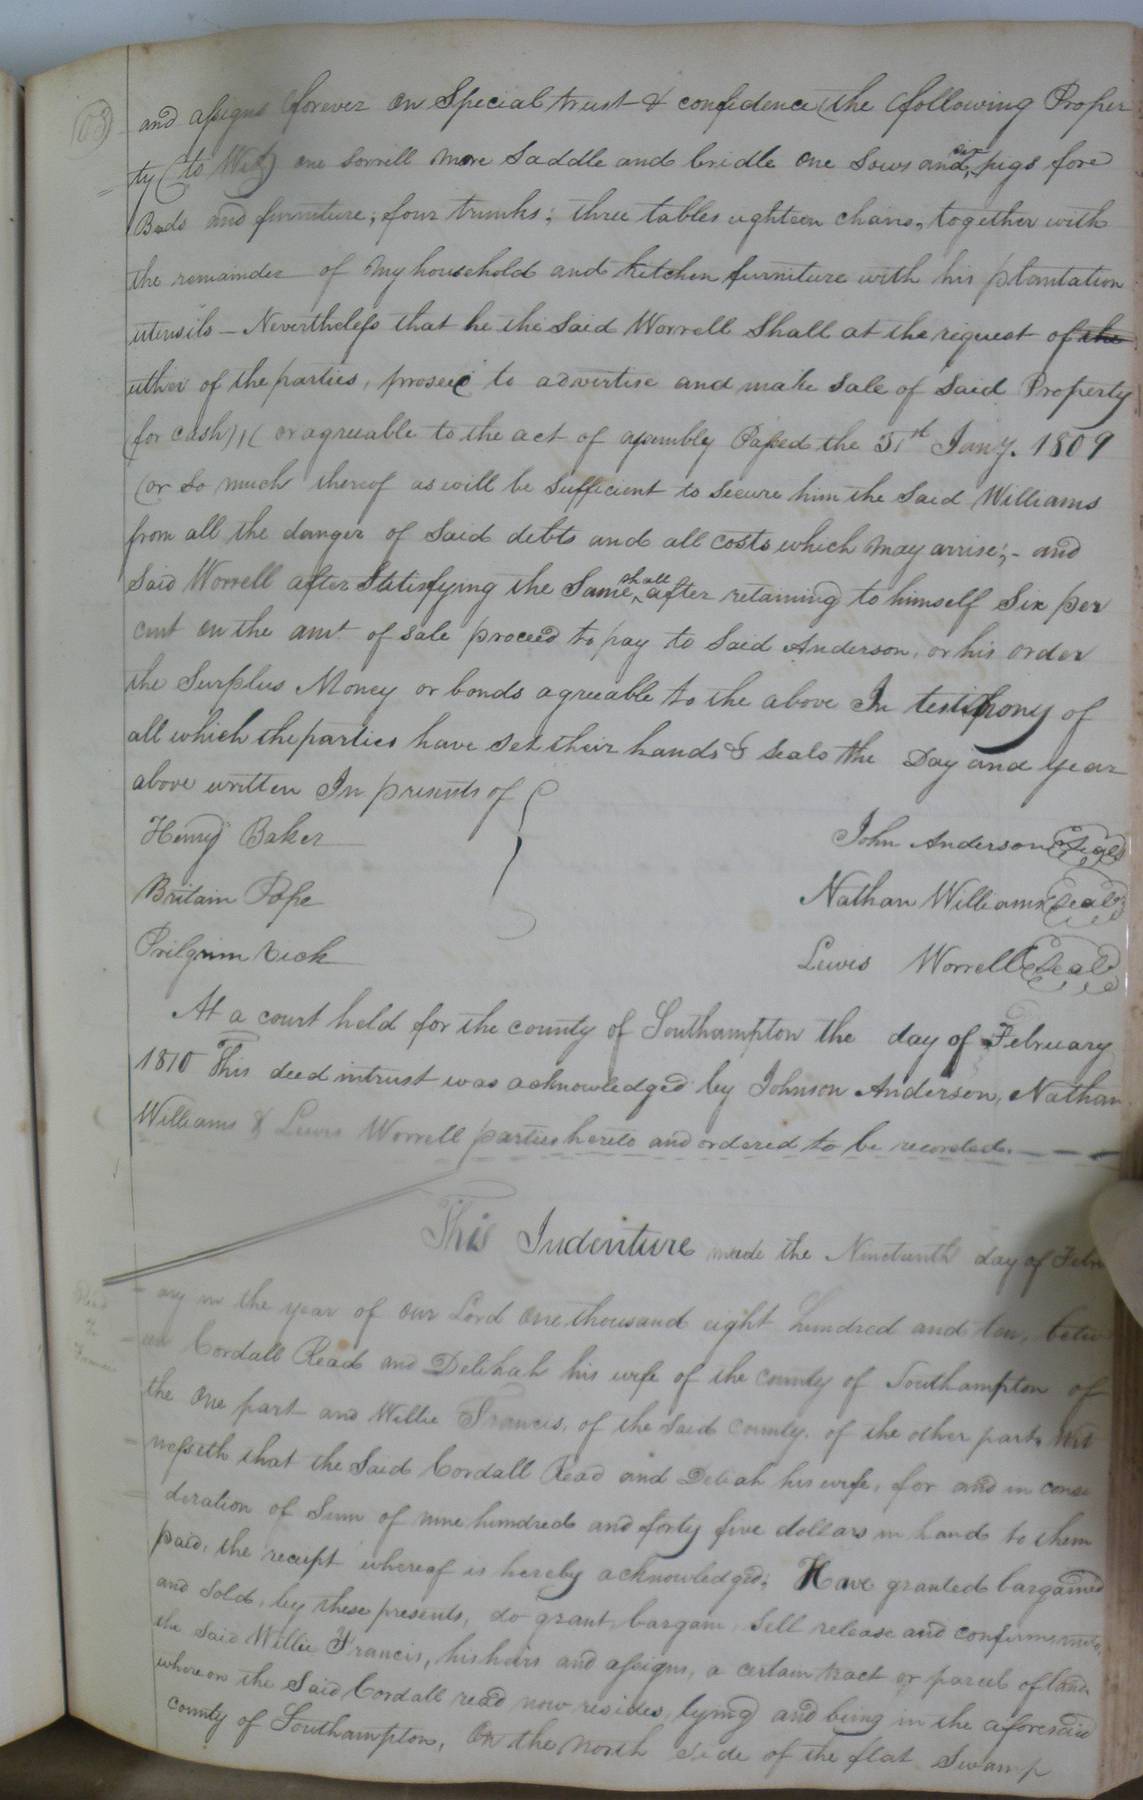 103
and assigns forever on Special trust & confidence (the following Proper
ty (to Wit) one Sorrell mare Saddle and bridle one Sows and six pigs fore
Beds and furniture, four trunks; three tables eighteen chairs, together with
the remainder of my household and kitchen furniture with his plantation
utensils — Nevertheless that he the Said Worrell Shall at the request of the
either of the parties, proseed to advertise and make Sale of Said Property
(for cash), (or agreeable to the act of assembly Passed the 31st Jany. 1809
(or So much thereof as will be Sufficient to Secure him the Said Williams
from all the danger of Said debts and all costs which may arrise;- and
Said Worrell after Statisfying the Same, shall after retaining to himself Six per
cent on the amt. of sale proceed to pay to Said Anderson, or his order
the Surplus Money or bonds agreeable to the above In testimony of
all which the parties have Set their hands & Seals the Day and year
above written In presents of
Henry Baker
John Anderson Seal
Britain Pope
Nathan Williams Seal
Prilgrim
Lewis Worrell Seal
At a court held for the county of Southampton the day of February
1810 This deed intrust was acknowledged by Johnson Anderson, Nathan
Williams & Lewis Worrell parties hereto and ordered to be recorded.
This Indenture made the Nineteenth day of Febru
Read
Francis
ary in the year of our Lord One thousand eight hundred and ten, betwe
en Cordall Read and Delihah his wife of the county of Southampton of
the One part and Willie Francis, of the Said County, of the other part, Wit
nesseth that the Said Cordall Read and Deliah his wife, for and in consi
deration of Sum of nine hundred and forty five dollars in hand to them
paid, the receipt whereof is hereby acknowledged; Have granted bargained
and Sold, by these presents, do grant, bargain, Sell release and confirm unto
the Said Willie Francis, his heirs and assigns, a certain tract or parcel of land
whereon the Said Cordall read now resides, lying and being in the aforesaid
county of Southampton, On the North Side of the flat Swamp